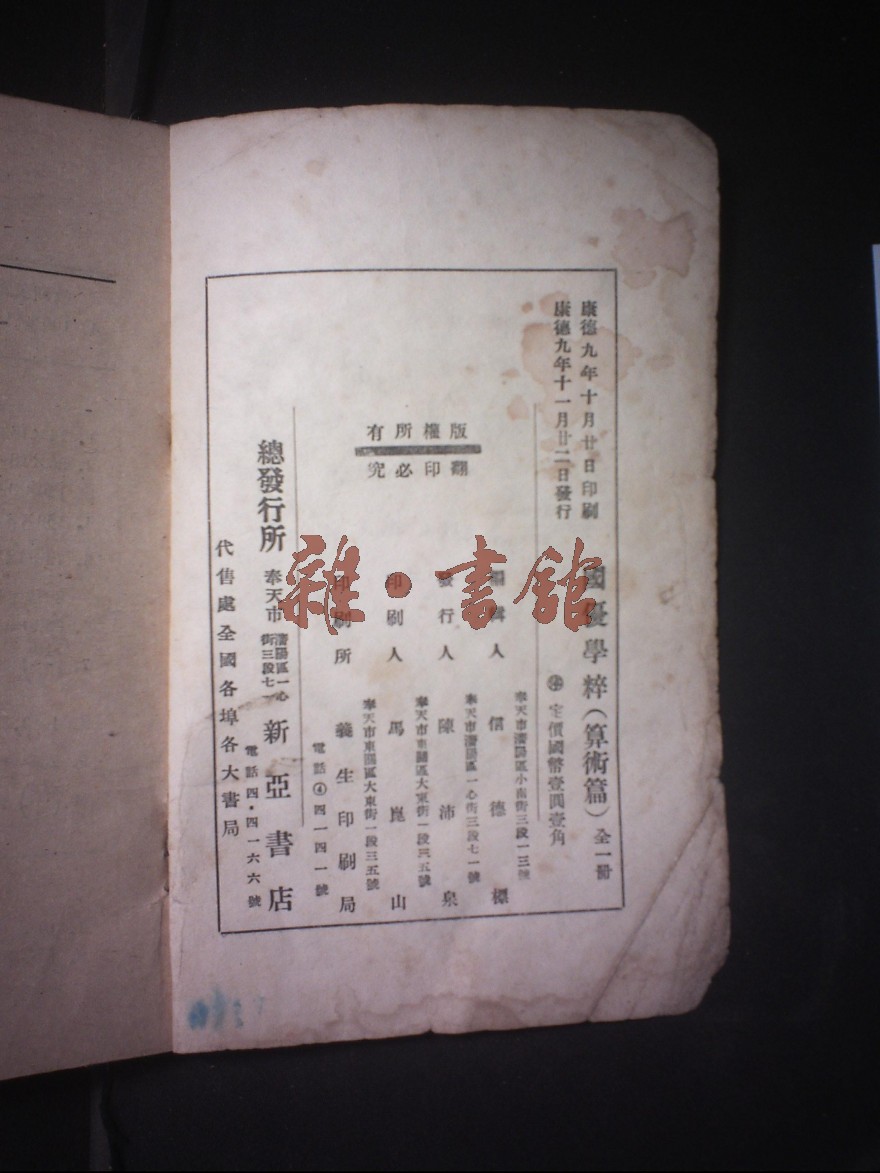 康德九年十月廿日印刷
康德九年十一月廿二日發行
國憂學粹（算術篇）全一冊
定價國幣壹圓壹角
版權所有
翻印必究
編輯人 信德標
奉天市瀋陽區小南街三段一三號
發行人 陳沛泉
奉天市瀋陽區一心街三段七一號
印刷人 馬崑山
奉天市東關區大東街一段三五號
印刷所 義生印刷局
奉天市東關區大東街一段三五號
電話④四一四一號
總發行所 奉天市瀋陽區一心街三段七一 新亞書店
電話四·四一六六號
代售處全國各埠各大書局
雜·書館